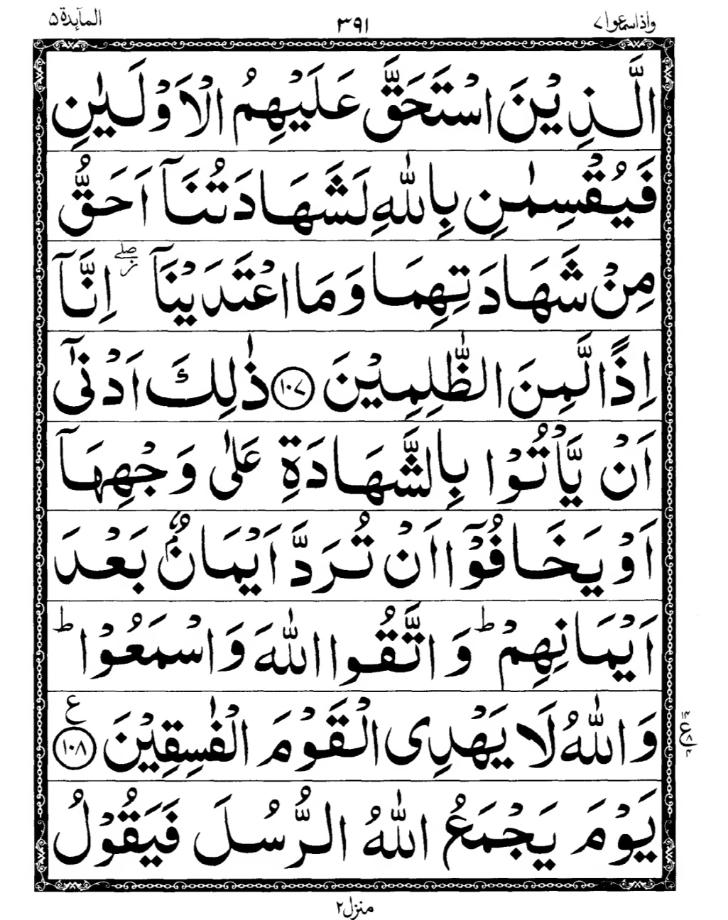 واذاسمعوا٧ ٣٩١ المآىٕدة٥
الَّذِيْنَ اسْتَحَقَّ عَلَيْهِمُ الْاَوْلَيٰنِ
فَيُقْسِمٰنِ بِاللّٰهِ لَشَهَادَتُنَاۤ اَحَقُّ
مِنْ شَهَادَتِهِمَا وَمَا اعْتَدَيْنَاۤ ۖؗ اِنَّاۤ
اِذًا لَّمِنَ الظّٰلِمِيْنَ ۝١٠٧ ذٰلِكَ اَدْنٰۤى
اَنْ يَّاْتُوْا بِالشَّهَادَةِ عَلٰى وَجْهِهَاۤ
اَوْ يَخَافُوْۤا اَنْ تُرَدَّ اَيْمَانٌۢ بَعْدَ
اَيْمَانِهِمْ ؕ وَ اتَّقُوا اللّٰهَ وَاسْمَعُوْا ؕ
وَ اللّٰهُ لَا يَهْدِى الْقَوْمَ الْفٰسِقِيْنَ ۝١٠٨ ع
يَوْمَ يَجْمَعُ اللّٰهُ الرُّسُلَ فَيَقُوْلُ
منزل٢